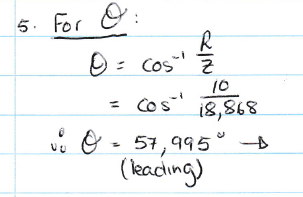 5. For θ:
θ = cos⁻¹ R/Z
= cos⁻¹ 10/18,868
∴ θ = 57,995° →
(leading)